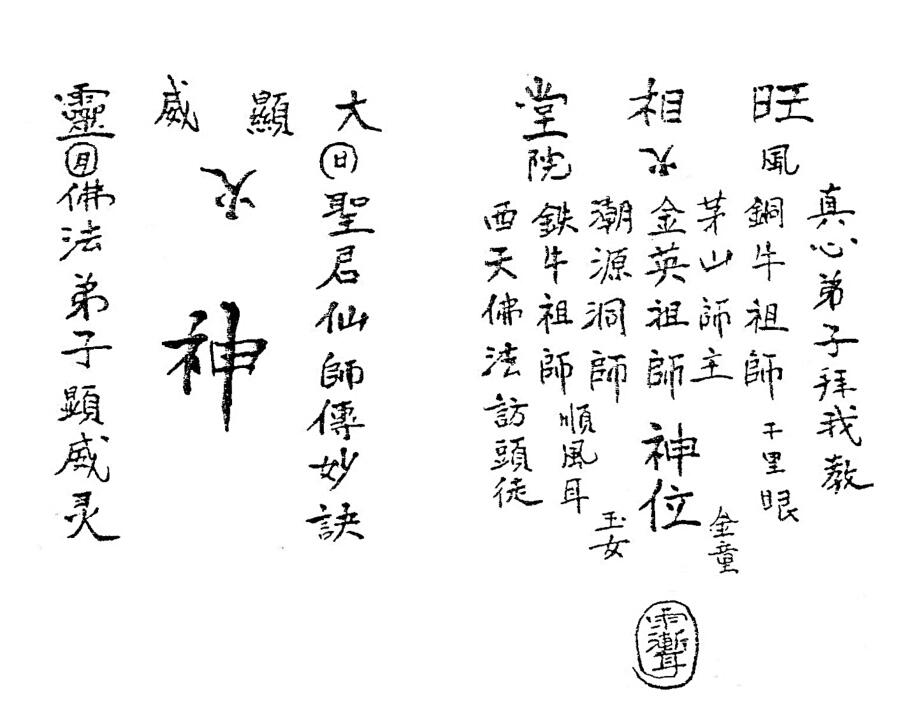 真心弟子拜我教
旺風銅牛祖師千里眼
茅山師主
金童
相火金英祖師神位
潮源洞師
玉女
堂院鉄牛祖師順風耳
西天佛法訪頭徒
大日聖君仙師傳妙訣
顯
火神
威
靈月佛法弟子顯威灵